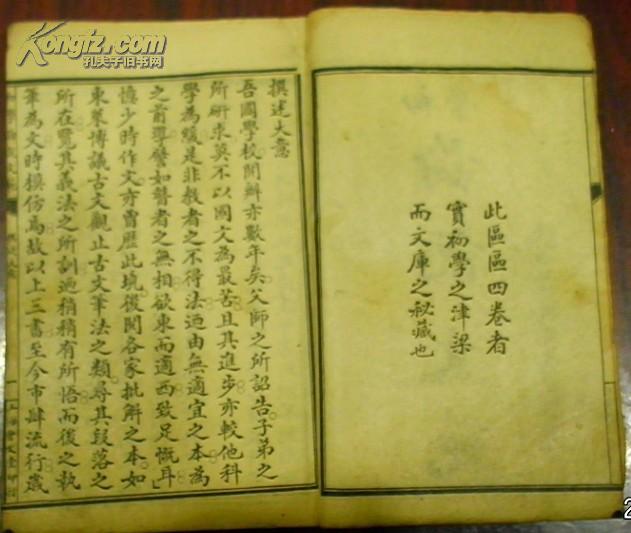 Kongfz.com
孔夫子旧书网
此區區四卷者
實初學之津梁
而文庫之秘藏也
撰述大意
吾國學校開辦亦數年矣父師之所詔告子弟之
所研求莫不以國文為最苦且其進步亦較他科
學為緩是非教者之不得法迺由無適宜之本為
之前導譬如瞽者之無相欲東而適西致足慨耳
憶少時作文亦嘗歷此境後閱各家批解之本如
東萊博議古文觀止古文筆法之類尋其段落之
所在覽其義法之所訓迺稍稍有所悟而後之執
筆為文時模仿焉故以上三書至今市肆流行歲